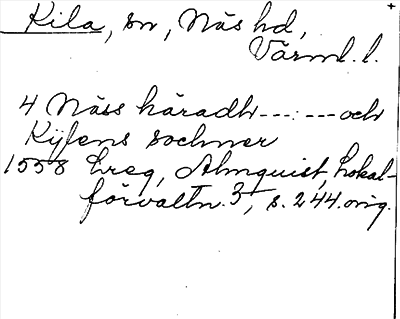 Kila, sn, Näs hd,
Värml. l.
4 Näss häradh ---:--- och
Kijlens sochner
1558 Lreg, Almquist, Lokal-
förvaltn. 3, s. 244. orig.